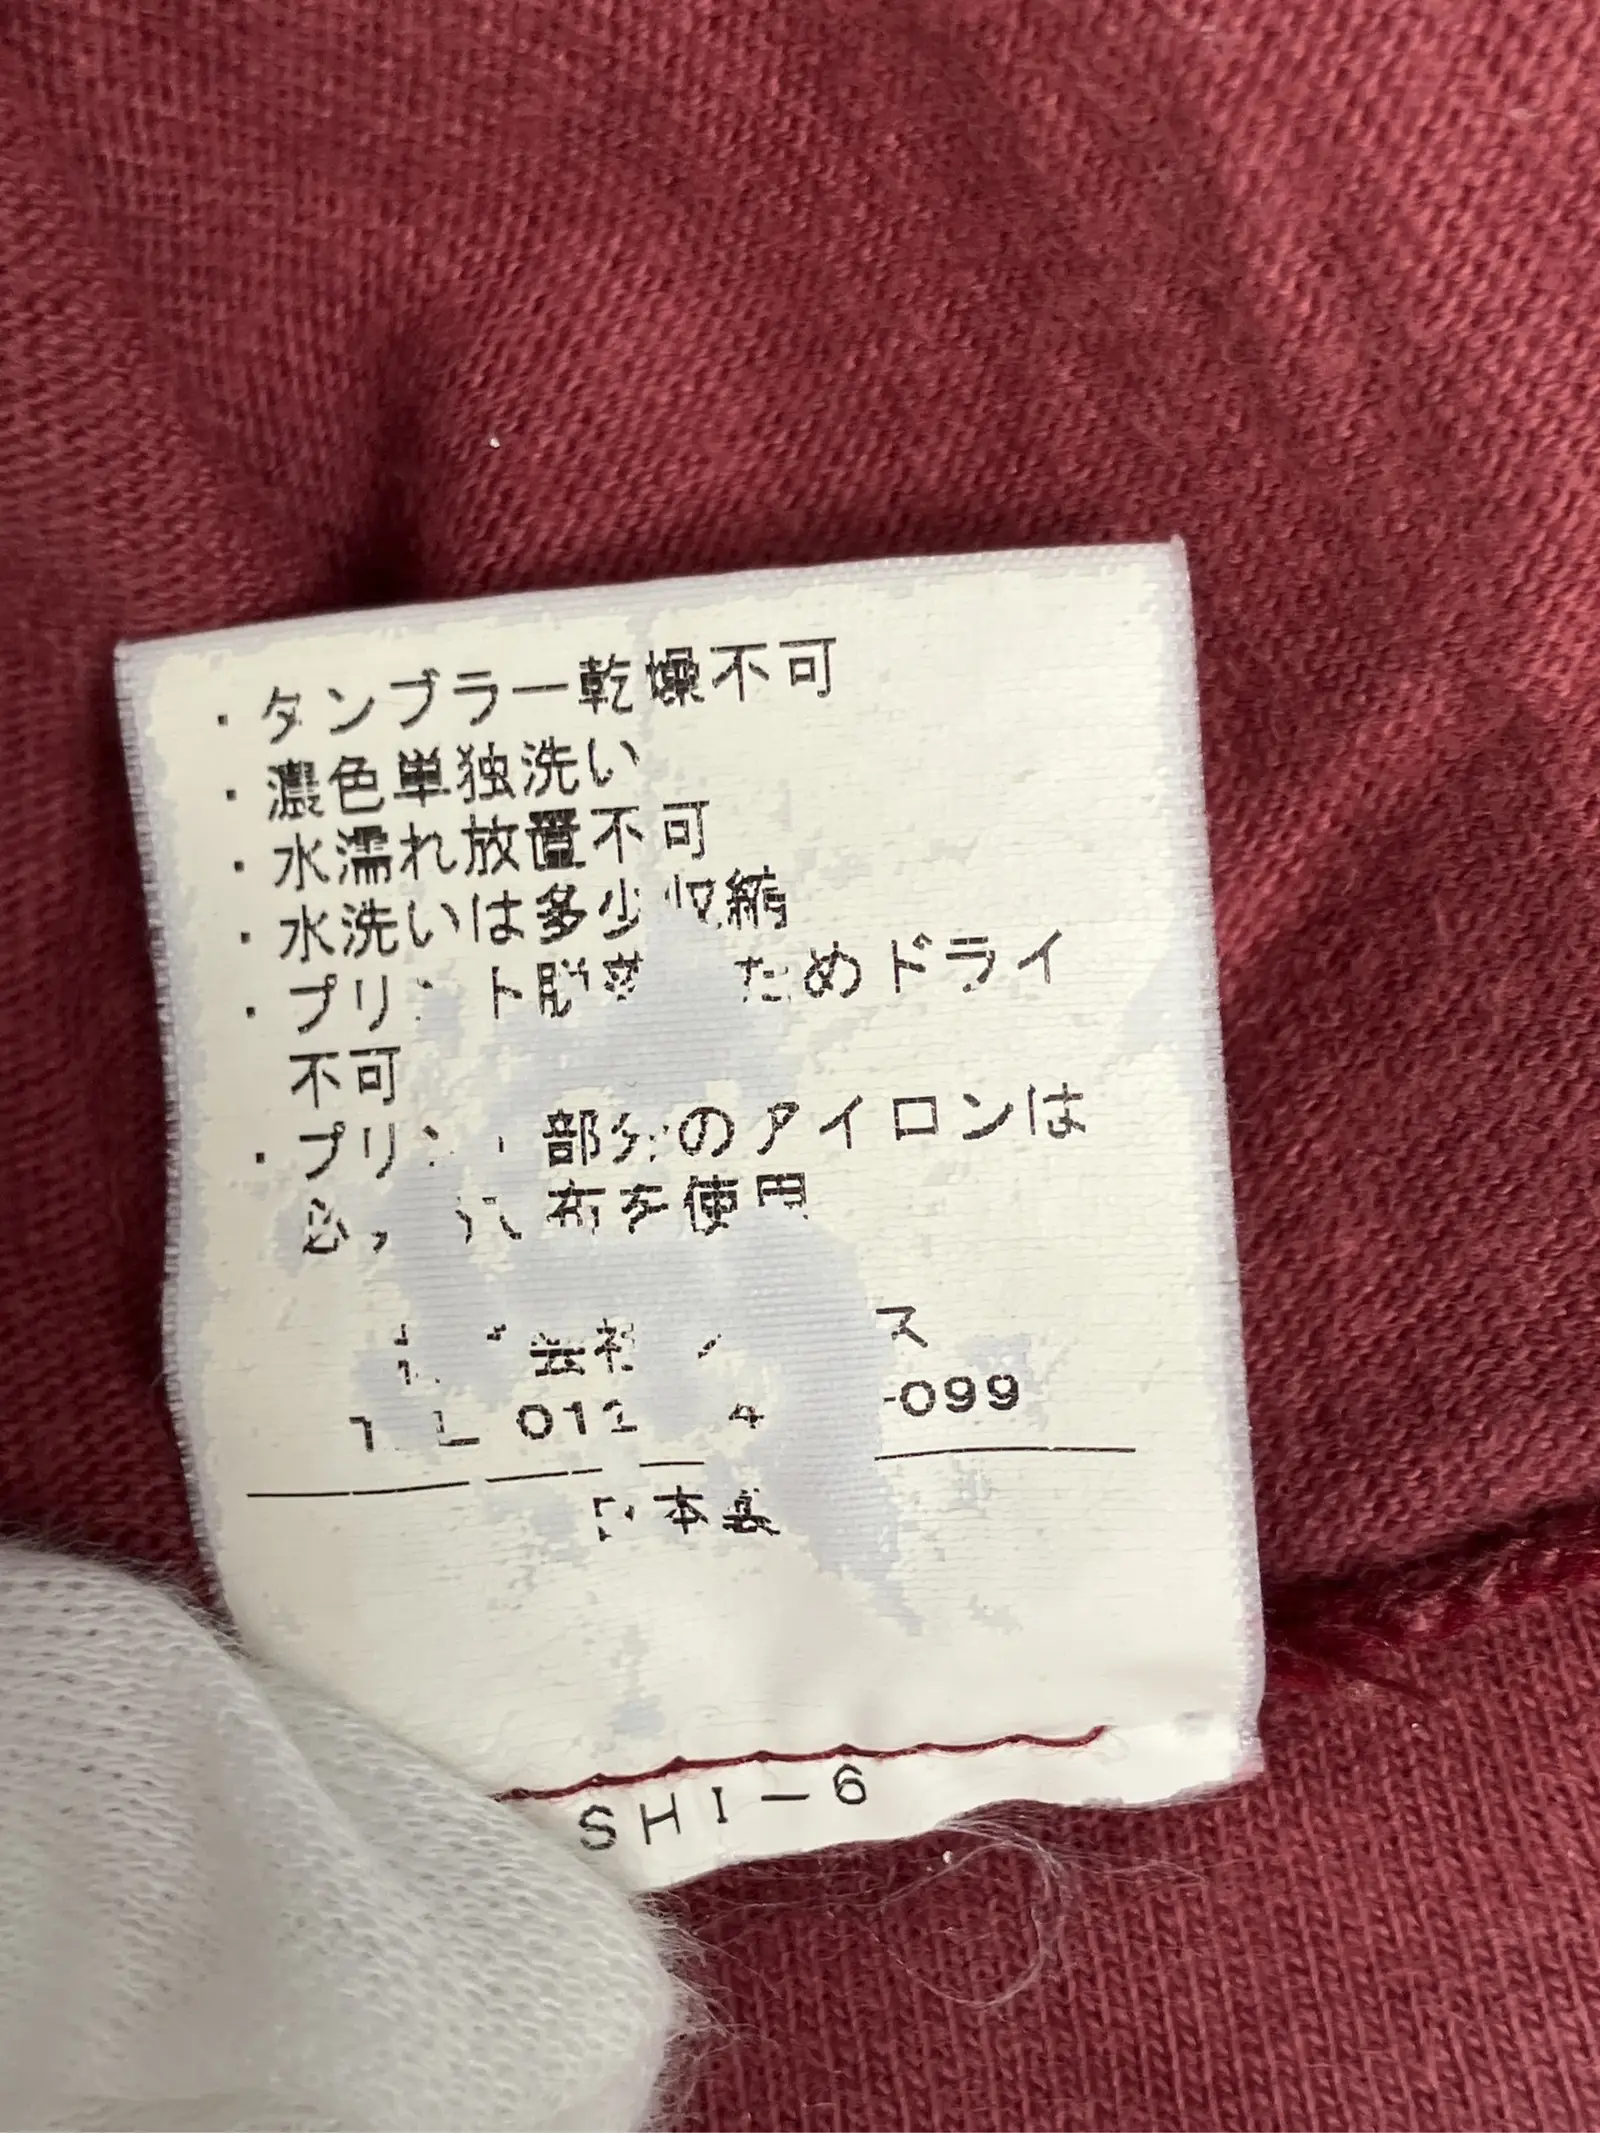 ・タンブラー乾燥不可
・濃色単独洗い
・水濡れ放置不可
・水洗いは多少収縮
・プリント脱落 ためドライ
不可
・プリント部分のアイロンは
必ず 布を使用
会社 ス
012 4 -099
日本製
SHI-6